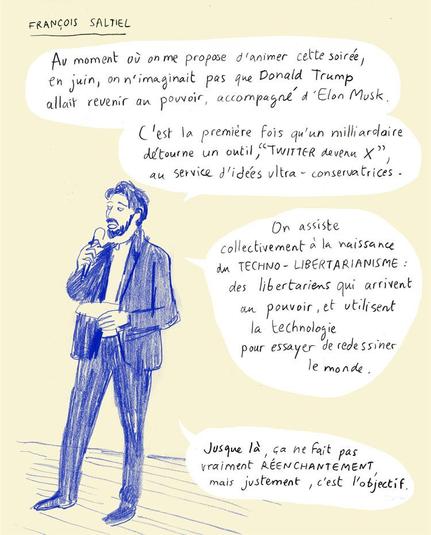 FRANÇOIS SALTIEL
Au moment où on me propose d'animer cette soirée,
en juin, on n'imaginait pas que Donald Trump
allait revenir au pouvoir, accompagné d'Elon Musk.
C'est la première fois qu'un milliardaire
détourne un outil, "TWITTER devenu X",
au service d'idées ultra-conservatrices.
On assiste
collectivement à la naissance
du TECHNO-LIBERTARIANISME :
des libertariens qui arrivent
au pouvoir, et utilisent
la technologie
pour essayer de redessiner
le monde.
Jusque là, ça ne fait pas
vraiment RÉENCHANTEMENT,
mais justement, c'est l'objectif.